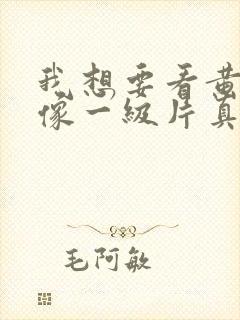 我想要看黄
像一级片真
毛阿敏